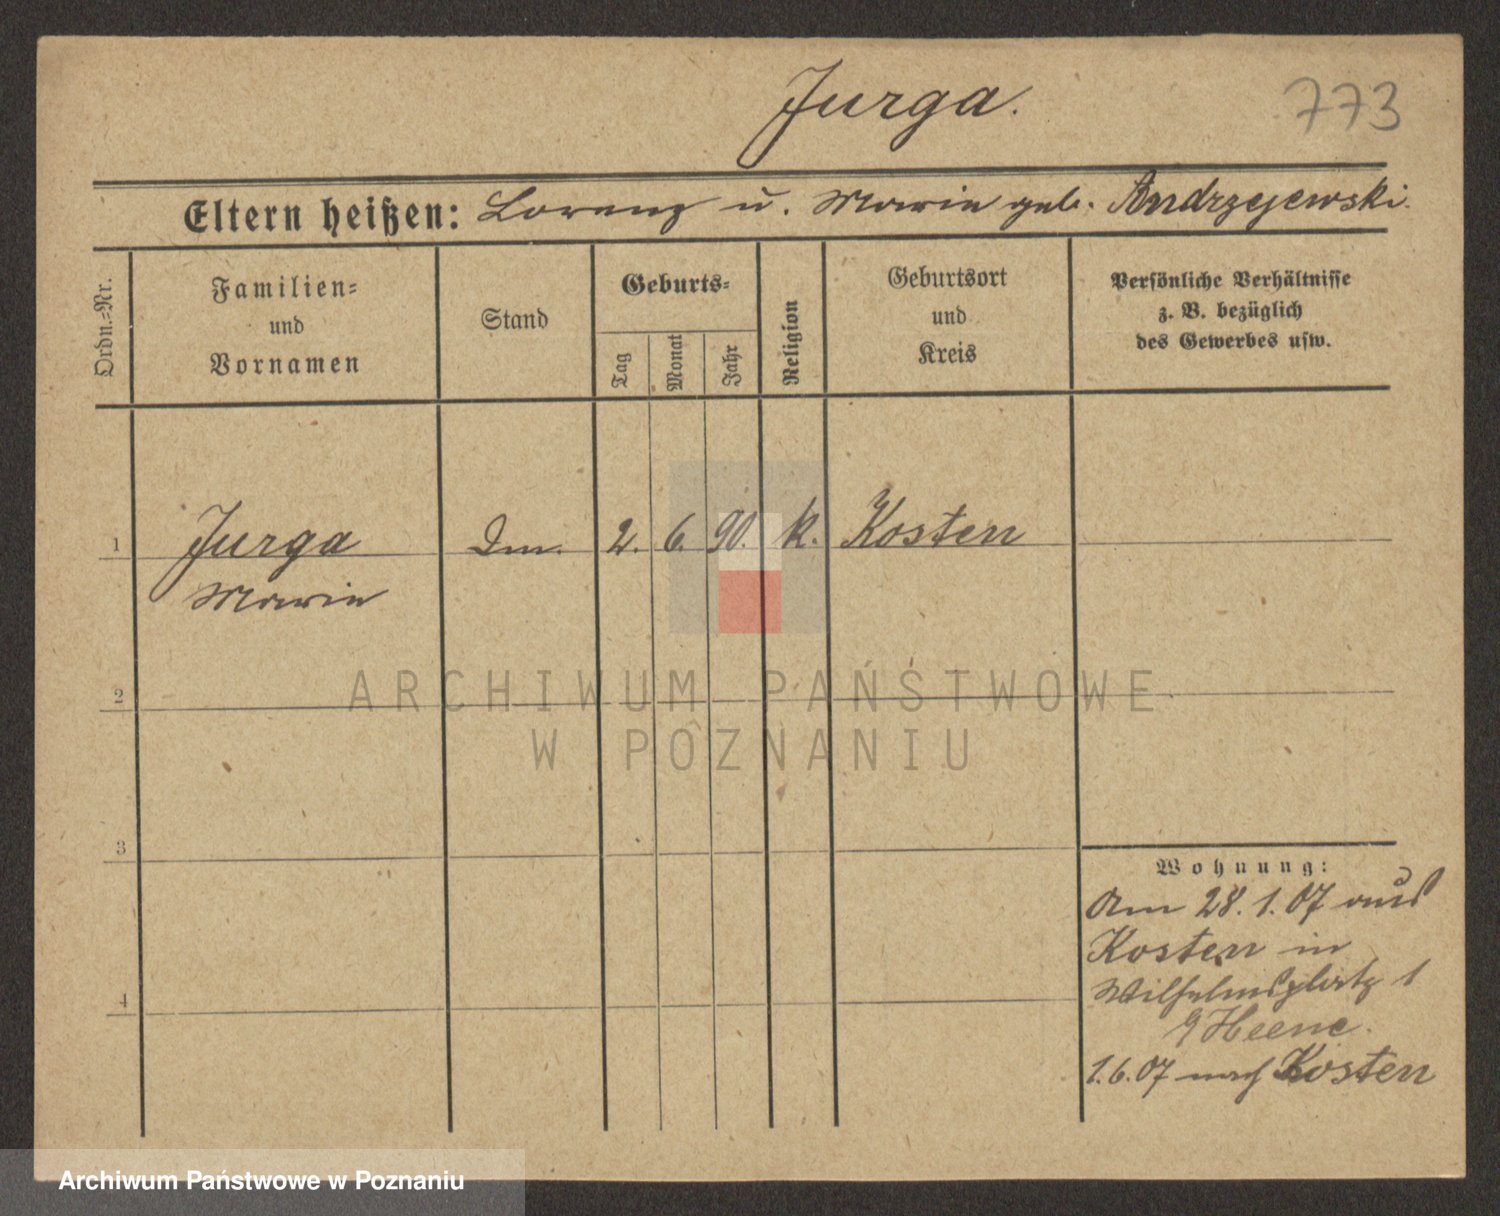 Jurga.
773
Eltern heißen: Lorenz u. Marie geb. Andrzejewski.
Ordn.=Nr.
Familien=
und
Vornamen
Stand
Geburts=
Tag
Monat
Jahr
Religion
Geburtsort
und
Kreis
Persönliche Verhältnisse
z. B. bezüglich
des Gewerbes usw.
1
Jurga
Marie
2. 6. 90. k. Kosten
2
3
4
ARCHIWUM PAŃSTWOWE
W POZNANIU
Wohnung:
Am 28.1.07 aus
Kosten in
Wilhelmsplatz 1
Heene.
1.6.07 nach Kosten
Archiwum Państwowe w Poznaniu